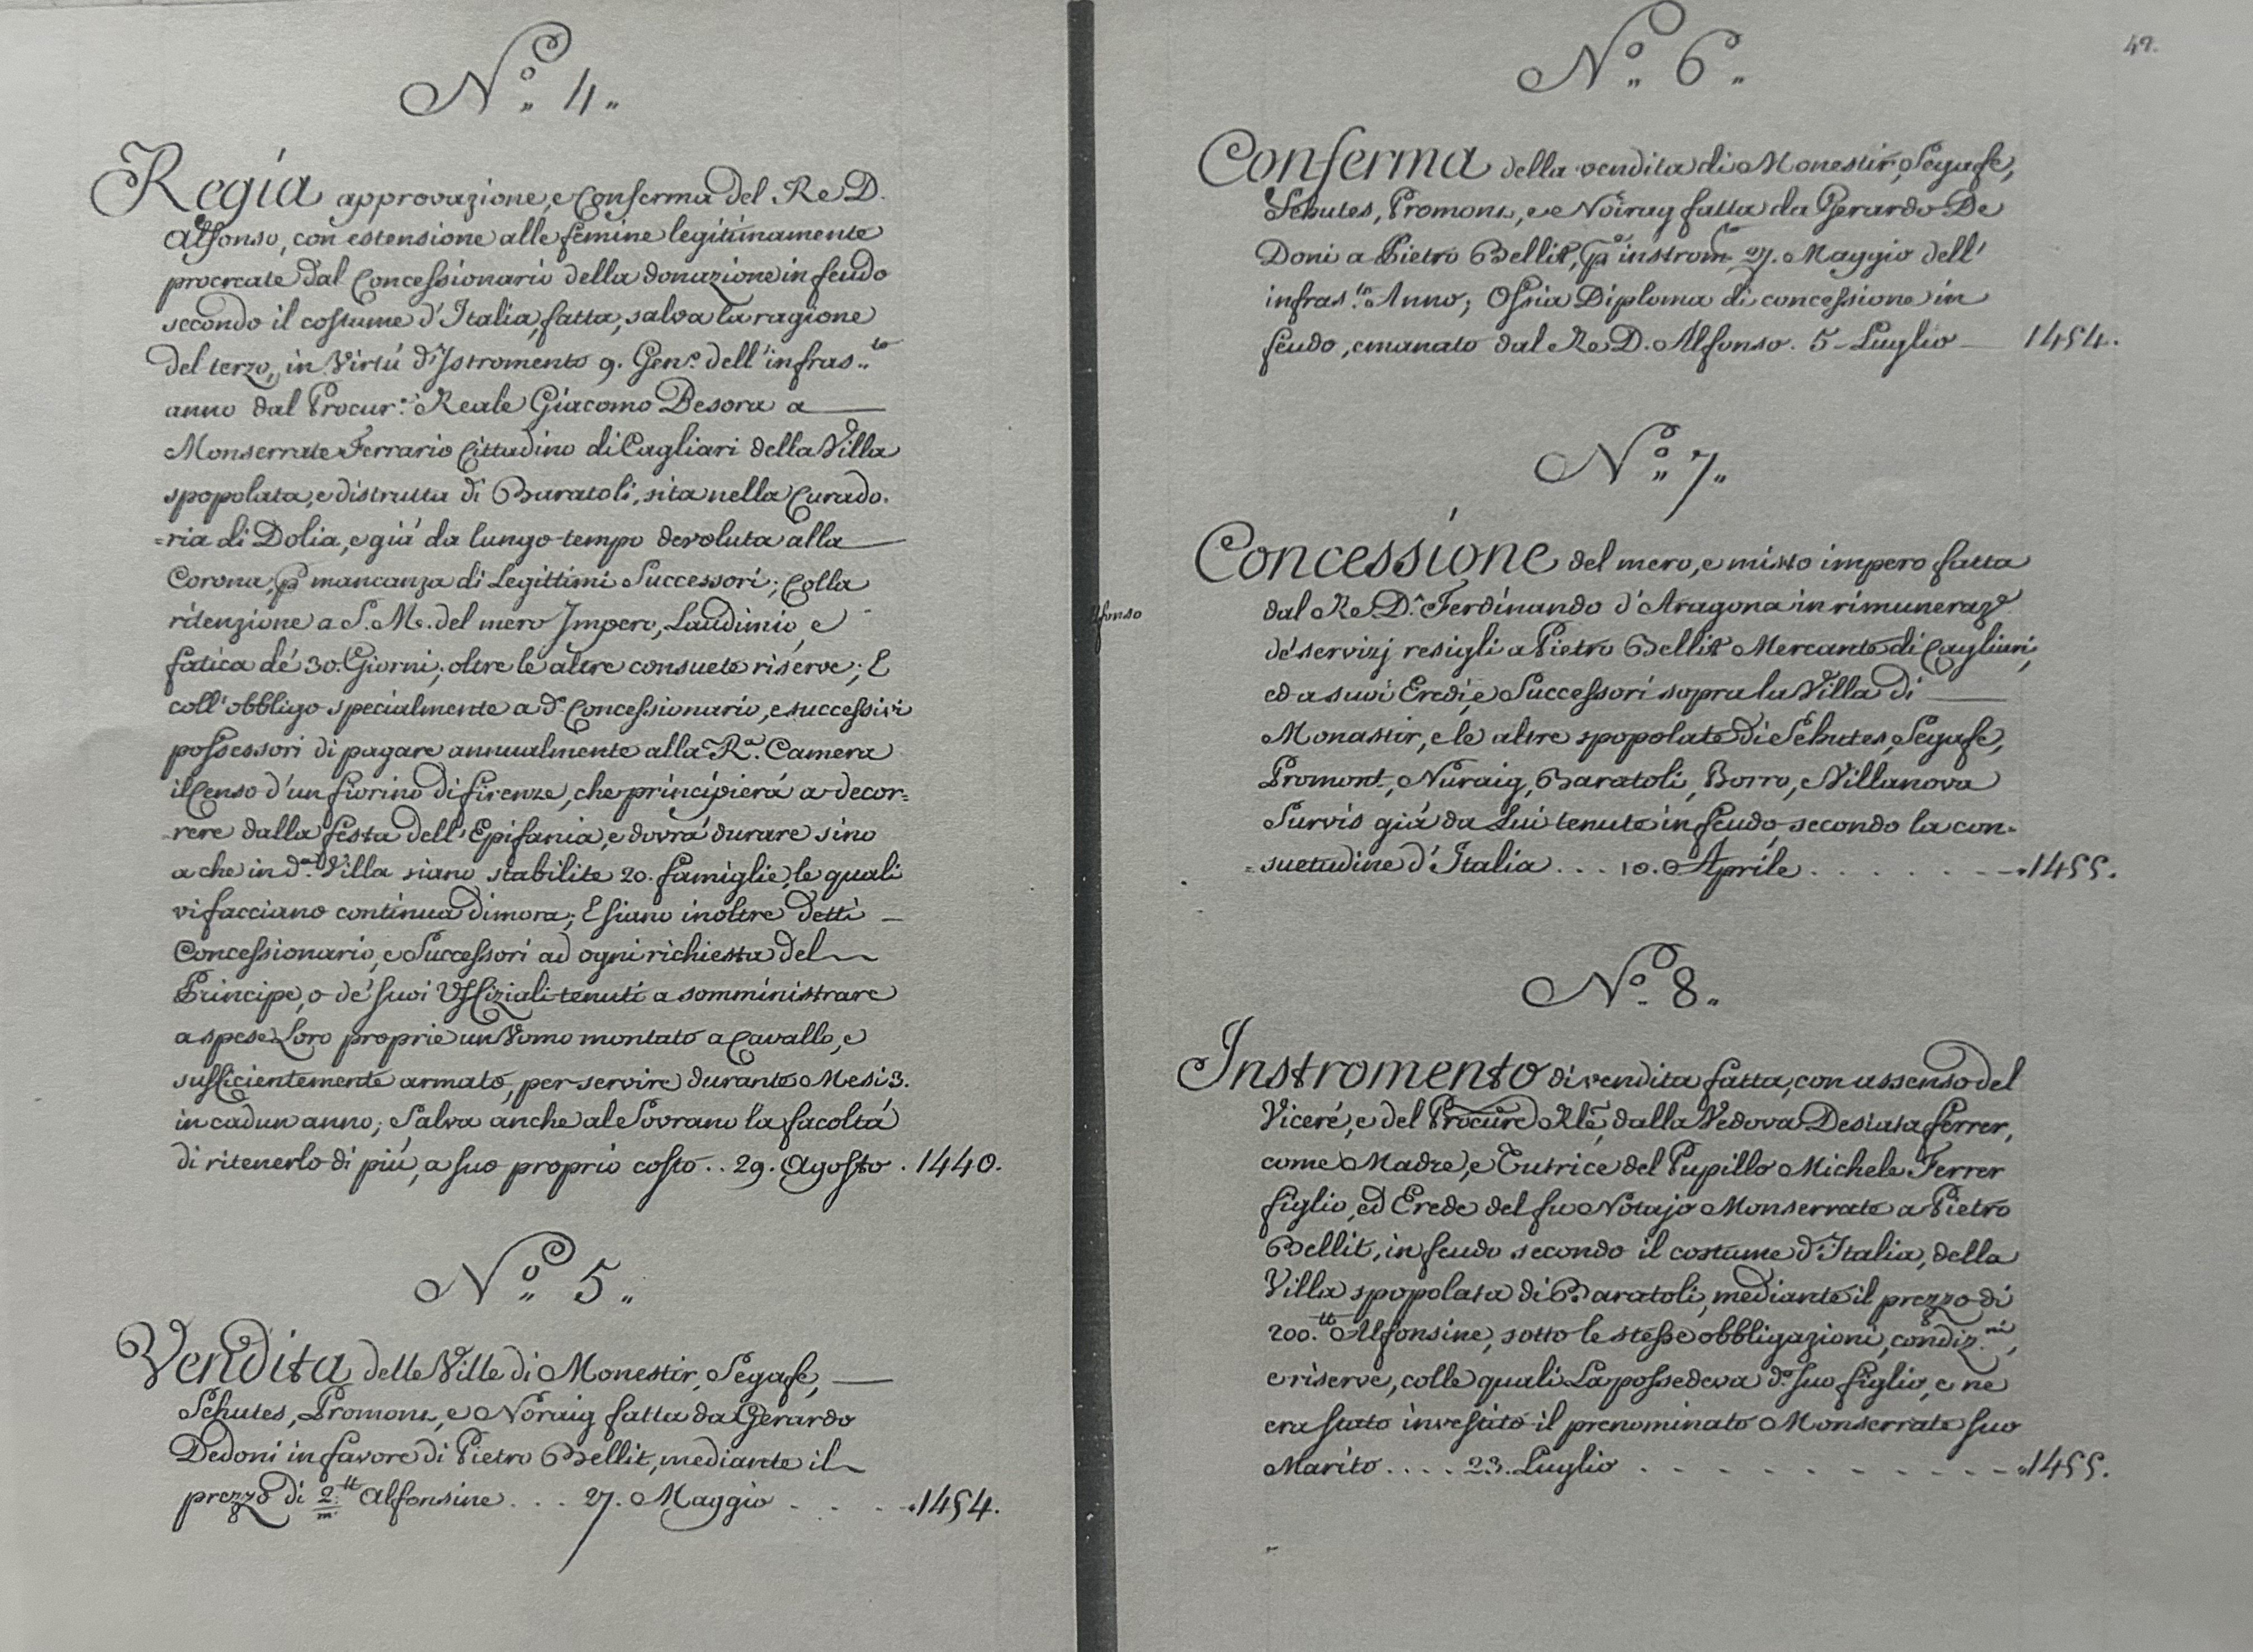 N.o 4.
Regia approvazione, e Conferma del Re D.
Alfonso, con estensione alle femine legitimamente
procreate dal Concessionario della donazione in feudo
secondo il costume d'Italia, fatta, salva la ragione
del terzo, in Virtù d'Istromento 9. Gen.o dell'infras.to
anno dal Procur.e Reale Giacomo Besora a
Monserrate Ferrario Cittadino di Cagliari della Villa
spopolata, e distrutta di Baratoli, sita nella Curado-
=ria di Dolia, e già da lungo tempo devoluta alla
Corona, p mancanza di Legittimi Successori; Colla
ritenzione a S. M. del mero Impero, Laudimio, e
fatica de' 30. Giorni; oltre le altre consuete riserve; E
coll'obbligo specialmente a d.o Concessionario, e successivi
possessori di pagare annualmente alla R.a Camera
il Censo d'un fiorino di firenze, che principierà a decor=
rere dalla festa dell'Epifania, e dovrà durare sino
a che in d.a Villa siano stabilite 20. famiglie, le quali
vi facciano continua dimora; E siano inoltre detti
Concessionario, e Successori ad ogni richiesta del
Principe, o de' suoi Uffiziali tenuti a somministrare
a spese Loro proprie un Uomo montato a Cavallo, e
sufficientemente armato, per servire durante Mesi 3.
in cadun anno; Salva anche al Sovrano la facoltà
di ritenerlo di più, a suo proprio costo .. 29. Agosto . 1440.
N.o 5.
Vendita delle Ville di Monestir, Segafe,
Sehutes, Promont, e Noraig fatta da Gerardo
Dedoni in favore di Pietro Bellit, mediante il
prezzo di 2.m tt Alfonsine . . . 27. Maggio . . . 1454.
49.
N.o 6.
Conferma della vendita di Monestir, Segafe,
Sehutes, Promont, e Noirag fatta da Gerardo De
Doni a Pietro Bellit, p instrom.to 27. Maggio dell'
infras.to Anno; Ossia Diploma di concessione in
feudo, emanato dal Re D. Alfonso. 5 Luglio 1454.
N.o 7.
Concessione del mero, e misto impero fatta
dal Re D.n Ferdinando d'Aragona in rimuneraz.e
de' servizj resigli a Pietro Bellit Mercante di Cagliari,
ed a suoi Eredi, e Successori sopra la Villa di
Monastir, e le altre spopolate di Sehutes, Segafe,
Promont, Nuraig, Baratoli, Borro, e Villanova
Survis già da Lui tenute in feudo, secondo la con-
=suetudine d'Italia . . . 10. Aprile . . . . . . 1455.
N.o 8.
Instromento di vendita fatta, con assenso del
Viceré, e del Procure Rle, dalla Vedova Desiata ferrer,
come Madre, e Tutrice del Pupillo Michele Ferrer
figlio, ed Erede del fu Notajo Monserrate a Pietro
Bellit, in feudo secondo il costume d'Italia, della
Villa spopolata di Baratoli, mediante il prezzo di
200.tt Alfonsine, sotto le stesse obbligazioni, condiz.ni,
e riserve, colle quali La possedeva d.o suo figlio, e ne
era stato investito il prenominato Monserrate suo
Marito . . . . 23. Luglio . . . . . . . . . 1455.